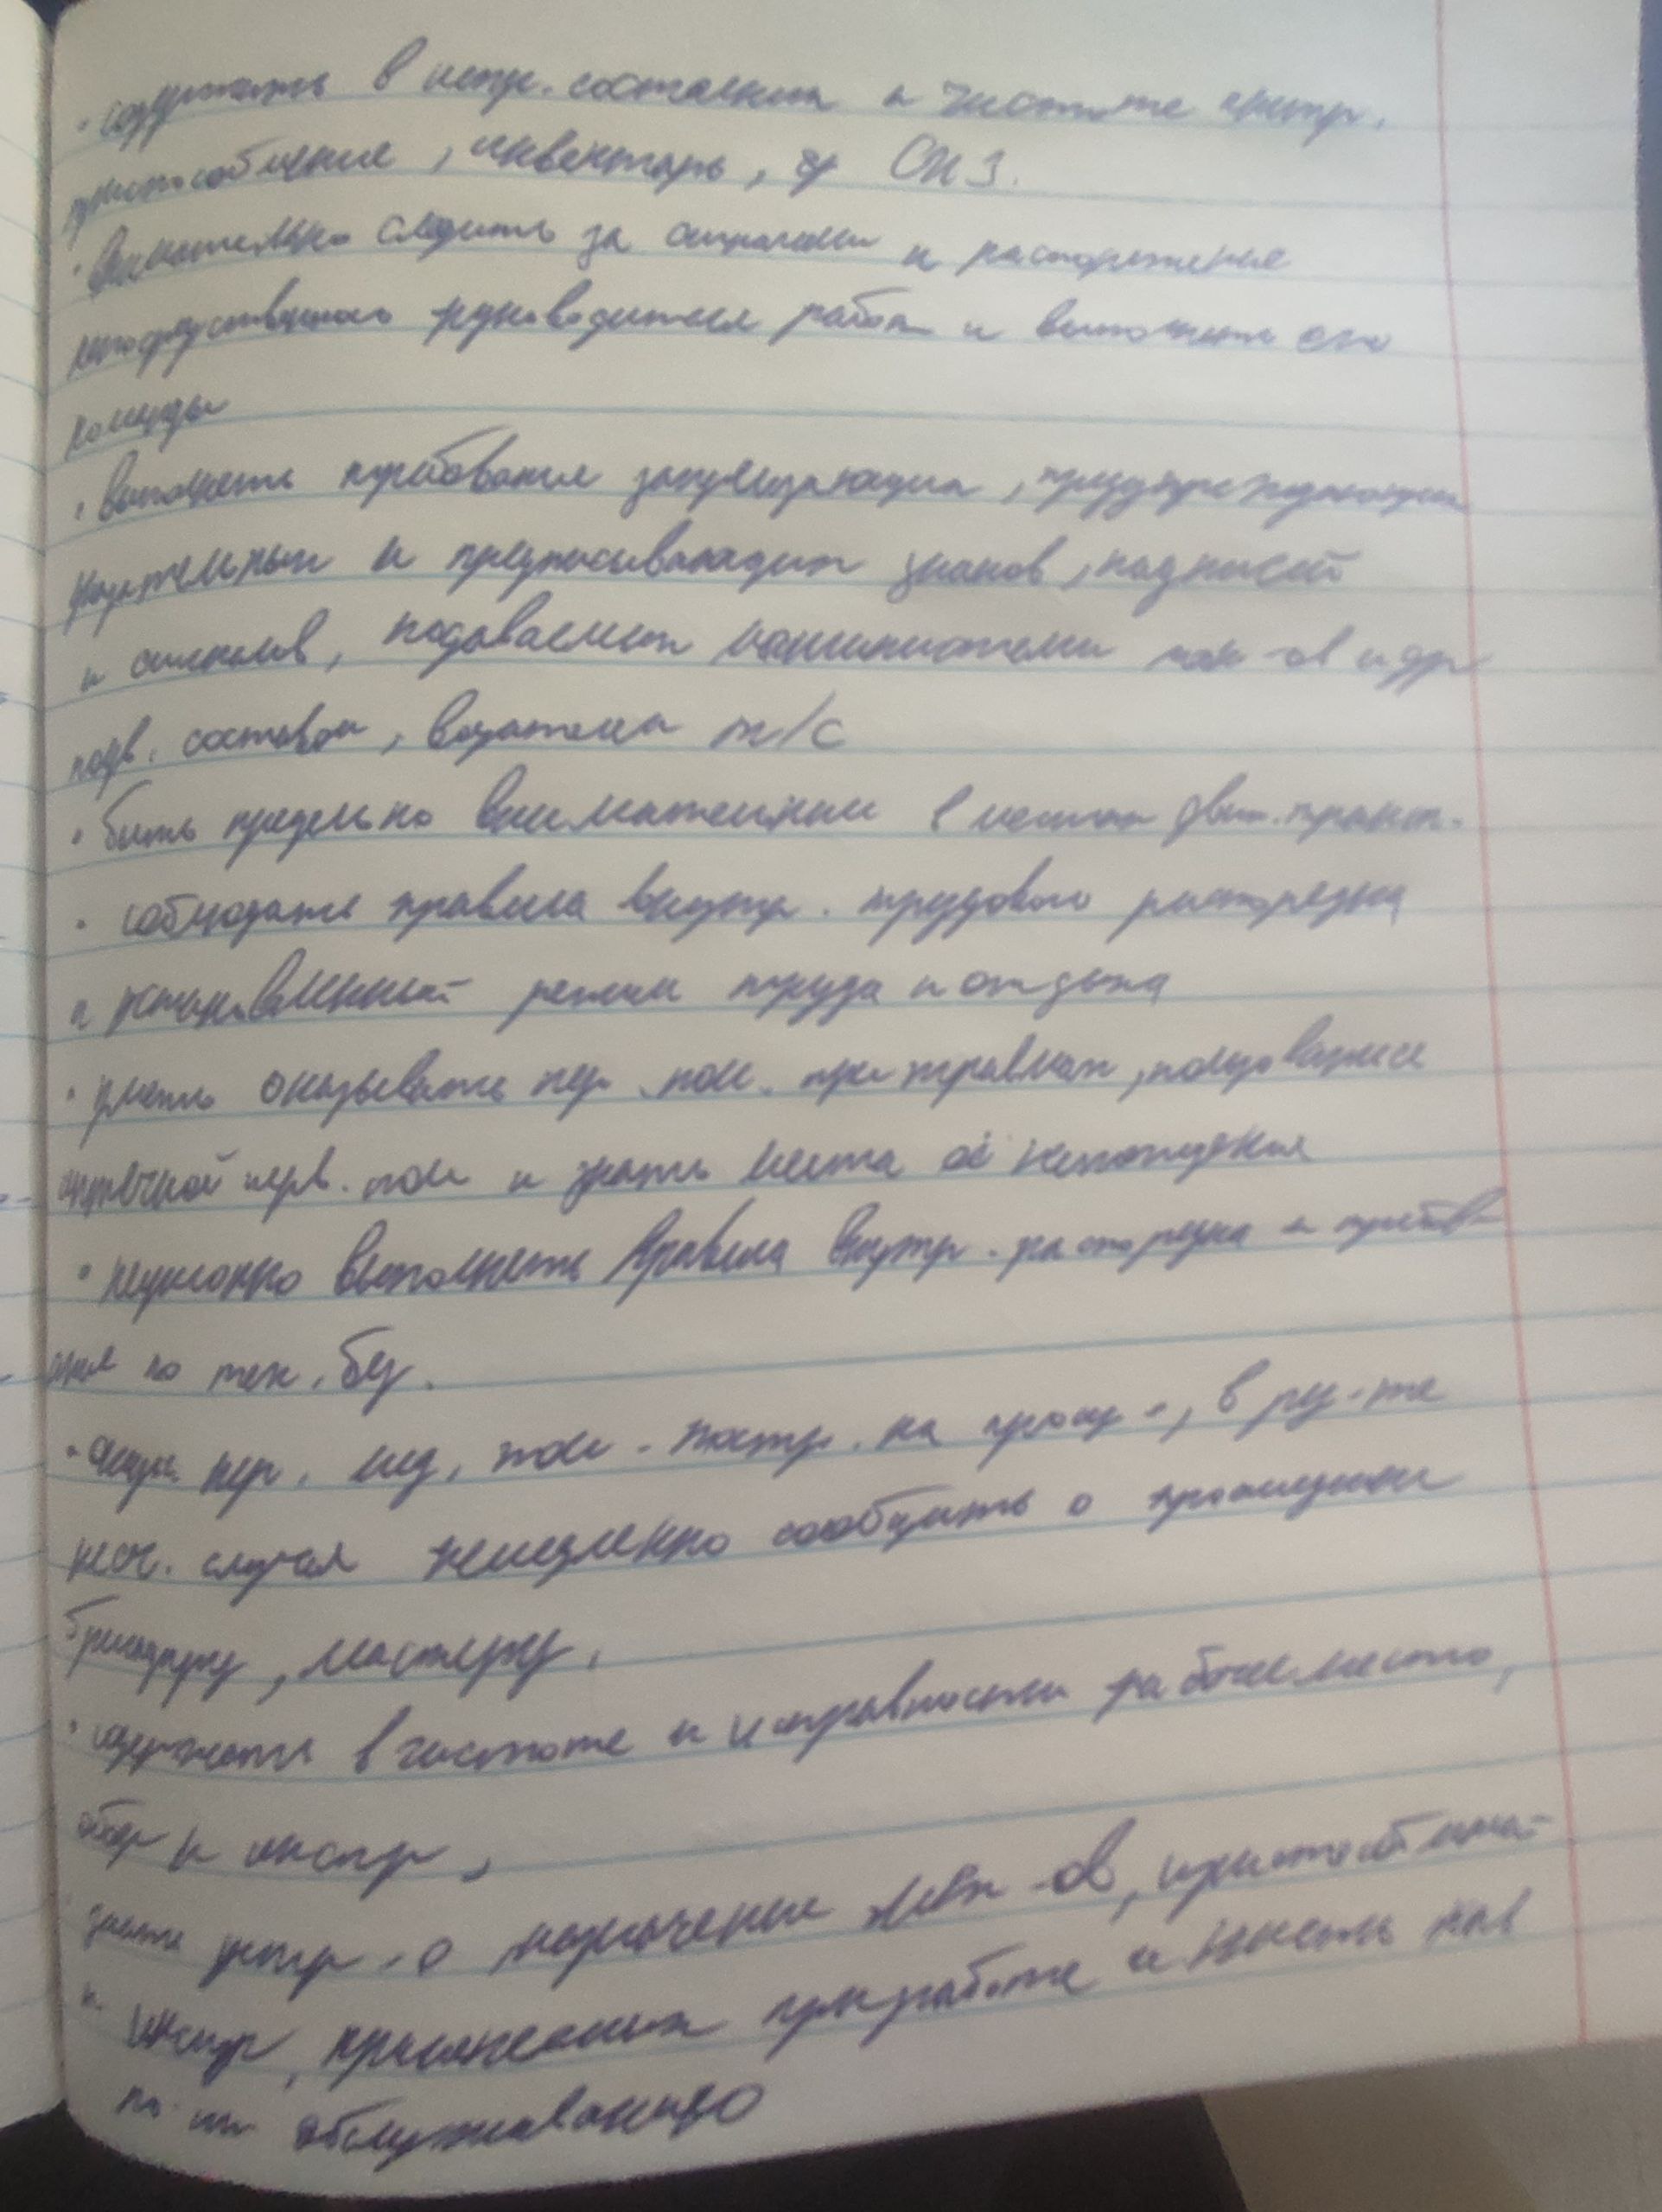 · содержать в испр. состоянии и чистоте инстр.
приспособление, инвентарь, СИЗ.
· внимательно следить за сигналами и распоряжения
непосредственного руководителя работ и выполнять его
команды
· выполнять требования запрещающих, предупреждающих
указательных и предписывающих знаков, надписей
и сигналов, подаваемых машинистами лок-ов и др
подв. состава, водителями т/с
· быть предельно внимательным в местах движ. трансп.
· соблюдать правила внутр. трудового распорядка
и установленный режим труда и отдыха
· уметь оказывать пер. пом. при травмах, пользоваться
аптечкой перв. пом и знать места её нахождения
· выполнять Правила внутр. распорядка и требова
ния по тех. без.
· пер. мед. пом. постр. на произ-, в рез-те
несч. случая немедленно сообщить о
бригадиру, мастеру.
· содержать в чистоте и исправности рабочее место,
обор и инстр,
знать устр-о назначение мех-ов, приспособлений
и инстр, применяемых при работе и иметь нав
по их обслуживанию